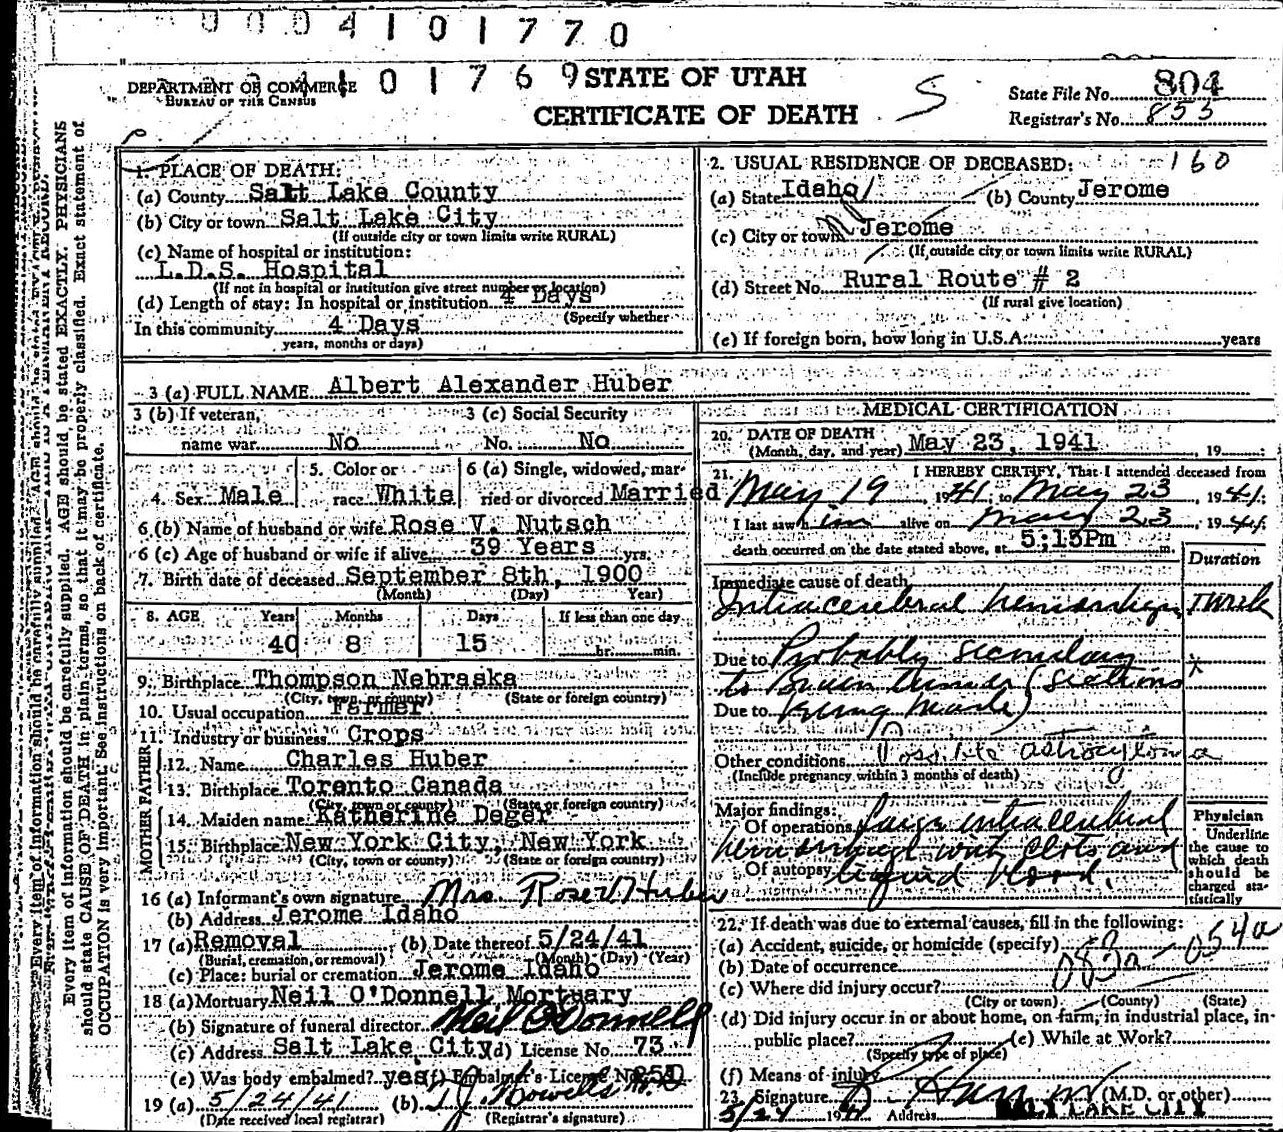 0004101770
DEPARTMENT OF COMMERCE
BUREAU OF THE CENSUS
4101769
STATE OF UTAH
CERTIFICATE OF DEATH
S
State File No. 804
Registrar's No. 853
1. PLACE OF DEATH:
(a) County Salt Lake County
(b) City or town Salt Lake City
(If outside city or town limits write RURAL)
(c) Name of hospital or institution:
L.D.S. Hospital
(If not in hospital or institution give street number or location)
(d) Length of stay: In hospital or institution 4 Days
(Specify whether
In this community 4 Days
years, months or days)
2. USUAL RESIDENCE OF DECEASED: 160
(a) State Idaho (b) County Jerome
(c) City or town Jerome
(If outside city or town limits write RURAL)
(d) Street No. Rural Route # 2
(If rural give location)
(e) If foreign born, how long in U.S.A. years
3 (a) FULL NAME Albert Alexander Huber
3 (b) If veteran, 3 (c) Social Security
name war No No. No
4. Sex Male
5. Color or
race White
6 (a) Single, widowed, mar-
ried or divorced Married
6 (b) Name of husband or wife Rose V. Nutsch
6 (c) Age of husband or wife if alive 39 Years yrs.
7. Birth date of deceased September 8th, 1900
(Month) (Day) Year)
8. AGE Years Months Days If less than one day
40 8 15 hr. min.
9. Birthplace Thompson Nebraska
(City, town, or county) (State or foreign country)
10. Usual occupation Farmer
11. Industry or business Crops
MOTHER FATHER
12. Name Charles Huber
13. Birthplace Toronto Canada
(City, town or county) (State or foreign country)
14. Maiden name Katherine Deger
15. Birthplace New York City, New York
(City, town or county) (State or foreign country)
16 (a) Informant's own signature Mrs. Rose V Huber
(b) Address Jerome Idaho
17 (a) Removal (b) Date thereof 5/24/41
(Burial, cremation, or removal) (Month) (Day) (Year)
(c) Place: burial or cremation Jerome Idaho
18 (a) Mortuary Neil O'Donnell Mortuary
(b) Signature of funeral director Neil O'Donnell
(c) Address Salt Lake City (d) License No. 73
(e) Was body embalmed? yes (f) Embalmer's License No.
19 (a) 5/24/41 (b)
(Date received local registrar) (Registrar's signature)
MEDICAL CERTIFICATION
20. DATE OF DEATH
(Month, day, and year) May 23, 1941, 19
21. I HEREBY CERTIFY, That I attended deceased from
May 19, 1941, to May 23, 1941;
I last saw him alive on May 23, 1941;
death occurred on the date stated above, at 5:15Pm m.
Duration
Immediate cause of death
Intracerebral hemorrhage 1 week
Due to Probably secondary
to Brain tumor (Sections
Due to being made)
Other conditions Possible astrocytoma
(Include pregnancy within 3 months of death)
Major findings:
Of operations large intracerebral
hemorrhage with clots and
Of autopsy liquid blood.
Physician
Underline
the cause to
which death
should be
charged sta-
tistically
22. If death was due to external causes, fill in the following:
(a) Accident, suicide, or homicide (specify) 054a
(b) Date of occurrence 083a
(c) Where did injury occur?
(City or town) (County) (State)
(d) Did injury occur in or about home, on farm, in industrial place, in
public place? (e) While at Work?
(Specify type of place)
(f) Means of injury
23. Signature (M.D. or other)
5/24 1941 Address SALT LAKE CITY
Every item of information should be carefully supplied. AGE should be stated EXACTLY. PHYSICIANS
should state CAUSE OF DEATH in plain terms, so that it may be properly classified. Exact statement of
OCCUPATION is very important. See instructions on back of certificate.